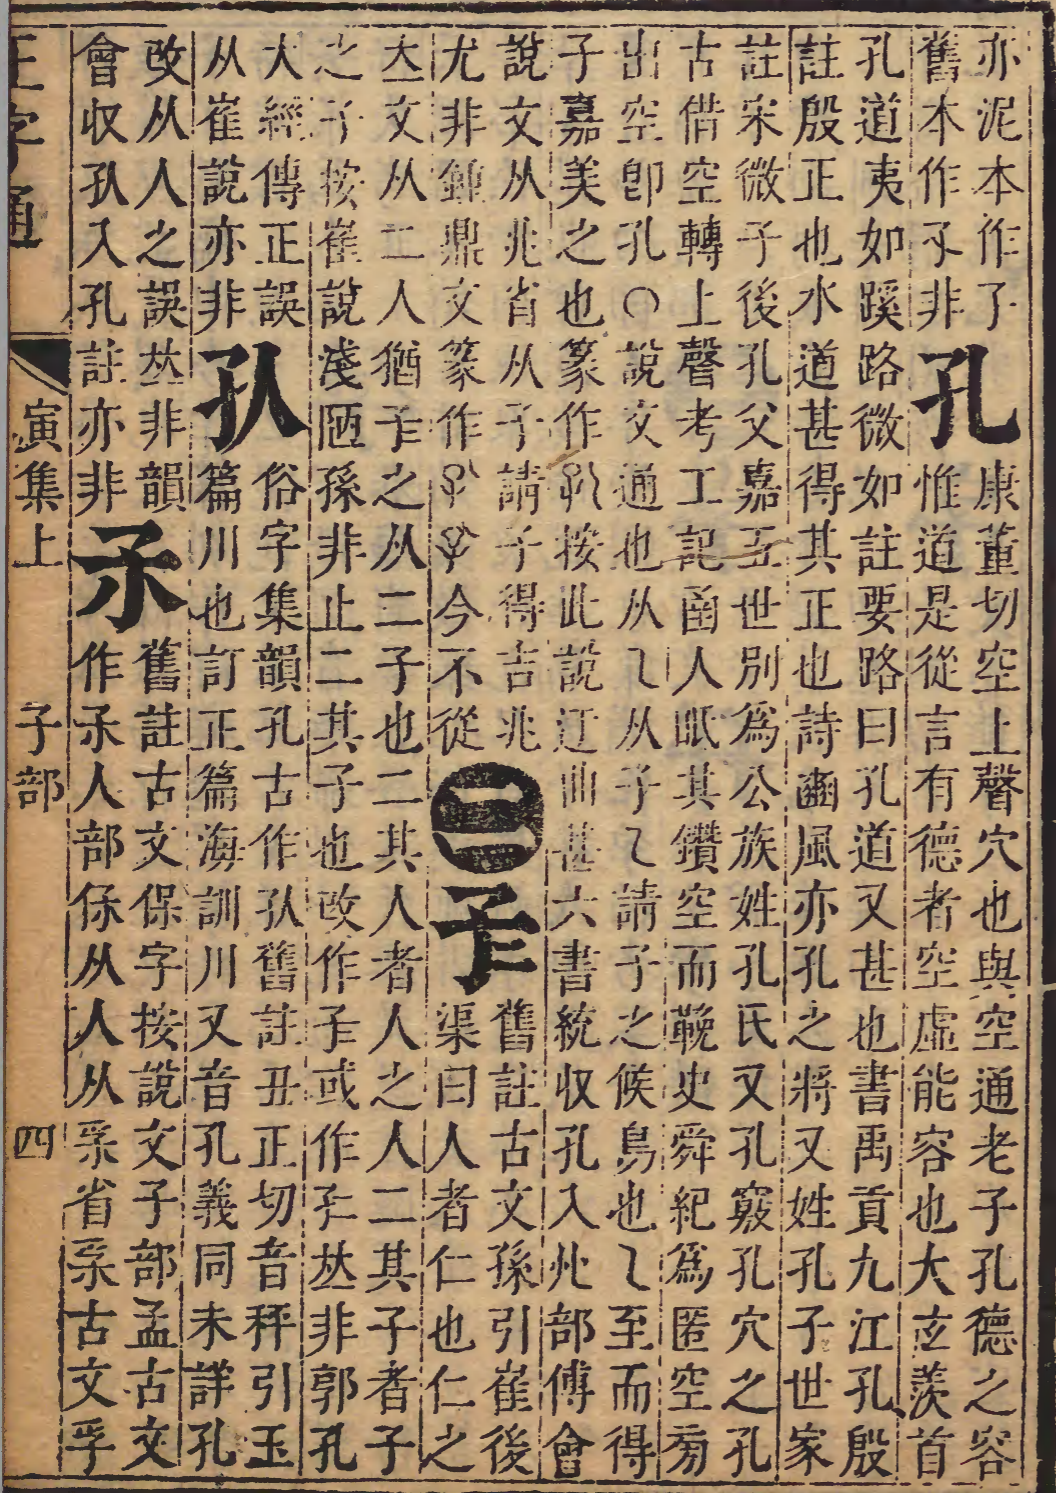 亦泥本作子
舊本作 非
孔
康董切空上聲穴也與空通老子孔德之容
惟道是從言有德者空虛能容也大玄羨首
孔道夷如蹊路微如註要路曰孔道又甚也書禹貢九江孔殷
註殷正也水道甚得其正也詩豳風亦孔之將又姓孔子世家
註宋微子後孔父嘉五世別爲公族姓孔氏又孔竅孔穴之孔
古借空轉上聲考工記函人眂其鑽空而 史舜紀爲匿空旁
出空卽孔○說文通也从乚从子乚請子之候鳥也乚至而得
子嘉美之也篆作 按此說迂曲甚六書統収孔入兆部傅會
說文从兆省从子請子得吉兆
尤非鐘鼎文篆作 今不從
二
舊註古文孫引崔後
渠曰人者仁也仁之
𠀤文从二人猶 之从二子也二其人者人之人二其子者子
之子按崔說淺陋孫非止二其子也改作 或作 𠀤非郭孔
大經傳正誤
从崔說亦非
㧈
俗字集韻孔古作 舊註丑正切音秤引玉
篇川也訂正篇海訓川又音孔義同未詳孔
攺从人之誤𠀤非韻
會収 入孔註亦非
𡥀
舊註古文保字按說文子部孟古文
作 人部保从人从 省 古文孚
正字通
寅集上
子部
四